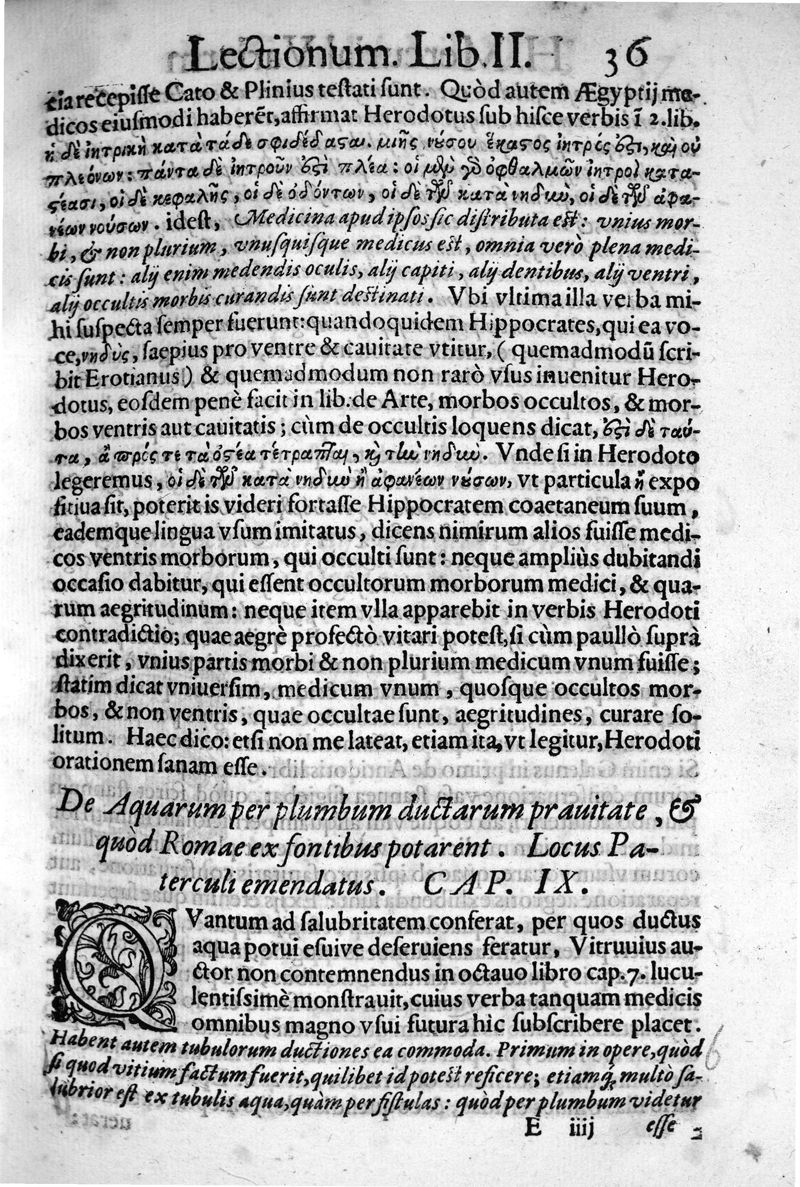 Lectionum. Lib. II. 36
cia recepisse Cato & Plinius testati sunt. Quòd autem Ægyptij me-
dicos eiusmodi haberẽt, affirmat Herodotus sub hisce verbis ĩ 2. lib.
ἡ δὲ ἰητρικὴ κατὰ τάδε σφι δέδασαι. μιῆς νούσου ἕκαστος ἰητρός ἐστι, καὶ οὐ
πλεόνων: πάντα δὲ ἰητρῶν ἐστὶ πλέα: οἱ μὲν γὸ ὀφθαλμῶν ἰητροὶ κατα-
στέασι, οἱ δὲ κεφαλῆς, οἱ δὲ ὀδόντων, οἱ δὲ τῶν κατὰ νηδὺν, οἱ δὲ τῶν ἀφα-
νέων νούσων. idest, Medicina apud ipsos sic distributa est: vnius mor-
bi, & non plurium, vnusquisque medicus est, omnia verò plena medi-
cis sunt: alij enim medendis oculis, alij capiti, alij dentibus, alij ventri,
alij occultis morbis curandis sunt destinati. Vbi vltima illa verba mi-
hi suspecta semper fuerunt: quandoquidem Hippocrates, qui ea vo-
ce, νηδὺς, saepius pro ventre & cauitate vtitur, (quemadmodũ scri-
bit Erotianus) & quemadmodum non rarò vsus inuenitur Hero-
dotus, eosdem penè facit in lib. de Arte, morbos occultos, & mor-
bos ventris aut cauitatis; cùm de occultis loquens dicat, ἐστὶ δὲ ταύ-
τα, ἃ πρός τε τὰ ὀστέα τέτραπται, κὶ τὴν νηδὺν. Vnde si in Herodoto
legeremus, οἱ δὲ τῶν κατὰ νηδὺν ἢ ἀφανέων νούσων, vt particula ἢ expo
sitiua sit, poterit is videri fortasse Hippocratem coaetaneum suum,
eademque lingua vsum imitatus, dicens nimirum alios fuisse medi-
cos ventris morborum, qui occulti sunt: neque ampliùs dubitandi
occasio dabitur, qui essent occultorum morborum medici, & qua-
rum aegritudinum: neque item vlla apparebit in verbis Herodoti
contradictio; quae aegrè profectò vitari potest, si cùm paullò suprà
dixerit, vnius partis morbi & non plurium medicum vnum fuisse;
statim dicat vniuersim, medicum vnum, quosque occultos mor-
bos, & non ventris, quae occultae sunt, aegritudines, curare so-
litum. Haec dico: etsi non me lateat, etiam ita, vt legitur, Herodoti
orationem sanam esse.
De Aquarum per plumbum ductarum prauitate, &
quòd Romae ex fontibus potarent. Locus Pa-
terculi emendatus. CAP. IX.
QVantum ad salubritatem conferat, per quos ductus
aqua potui esuive deseruiens feratur, Vitruuius au-
ctor non contemnendus in octauo libro cap. 7. lucu-
lentissimè monstrauit, cuius verba tanquam medicis
omnibus magno vsui futura hìc subscribere placet.
Habent autem tubulorum ductiones ea commoda. Primum in opere, quòd
si quod vitium factum fuerit, quilibet id potest reficere; etiamq́ multò sa-
lubrior est ex tubulis aqua, quàm per fistulas: quòd per plumbum videtur
E iiij esse